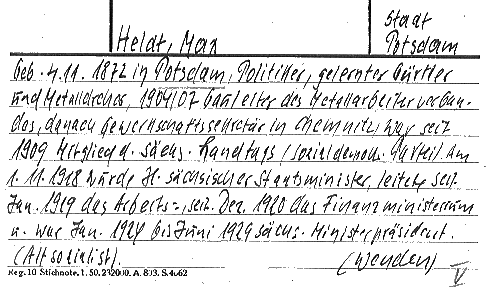 Stadt
Heldt, Max Potsdam
Geb. 4.11. 1872 in Potsdam, Politiker, gelernter Gürtler
und Metalldreher, 1904/07 Gauleiter des Metallarbeiterverban-
des, danach Gewerkschaftssekretär in Chemnitz, war seit
1909 Mitglied d. sächs. Landtags (Sozialdemok. Partei). Am
1.11.1918 wurde H. sächsischer Staatsminister, leitete seit
Jan. 1919 das Arbeits=, seit Dez. 1920 das Finanzministerium
u. war Jan. 1924 bis Juni 1929 sächs. Ministerpräsident.
(Altsozialist). (Wenden) V
Reg. 10 Stichnote. 1. 50. 232000. A. 803. S. 4662